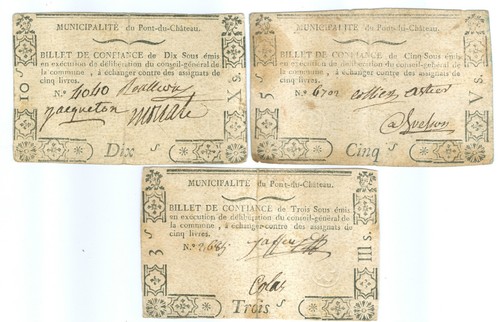 MUNICIPALITÉ du Pont-du-Château.
BILLET DE CONFIANCE de Dix Sous émis
en exécution de délibération du conseil-général de
la commune, à échanger contre des assignats de
cinq livres.
N.º 4040
Jacqueton
10 S
X s.
Dix S
MUNICIPALITÉ du Pont-du-Château.
BILLET DE CONFIANCE de Cinq Sous émis
en exécution de délibération du conseil-général de
la commune, à échanger contre des assignats de
cinq livres.
N.º 6701
5 S
V s.
Cinq S
MUNICIPALITÉ du Pont-du-Château.
BILLET DE CONFIANCE de Trois Sous émis
en exécution de délibération du conseil-général de
la commune, à échanger contre des assignats de
cinq livres.
N.º
Colas
3 S
III s.
Trois S